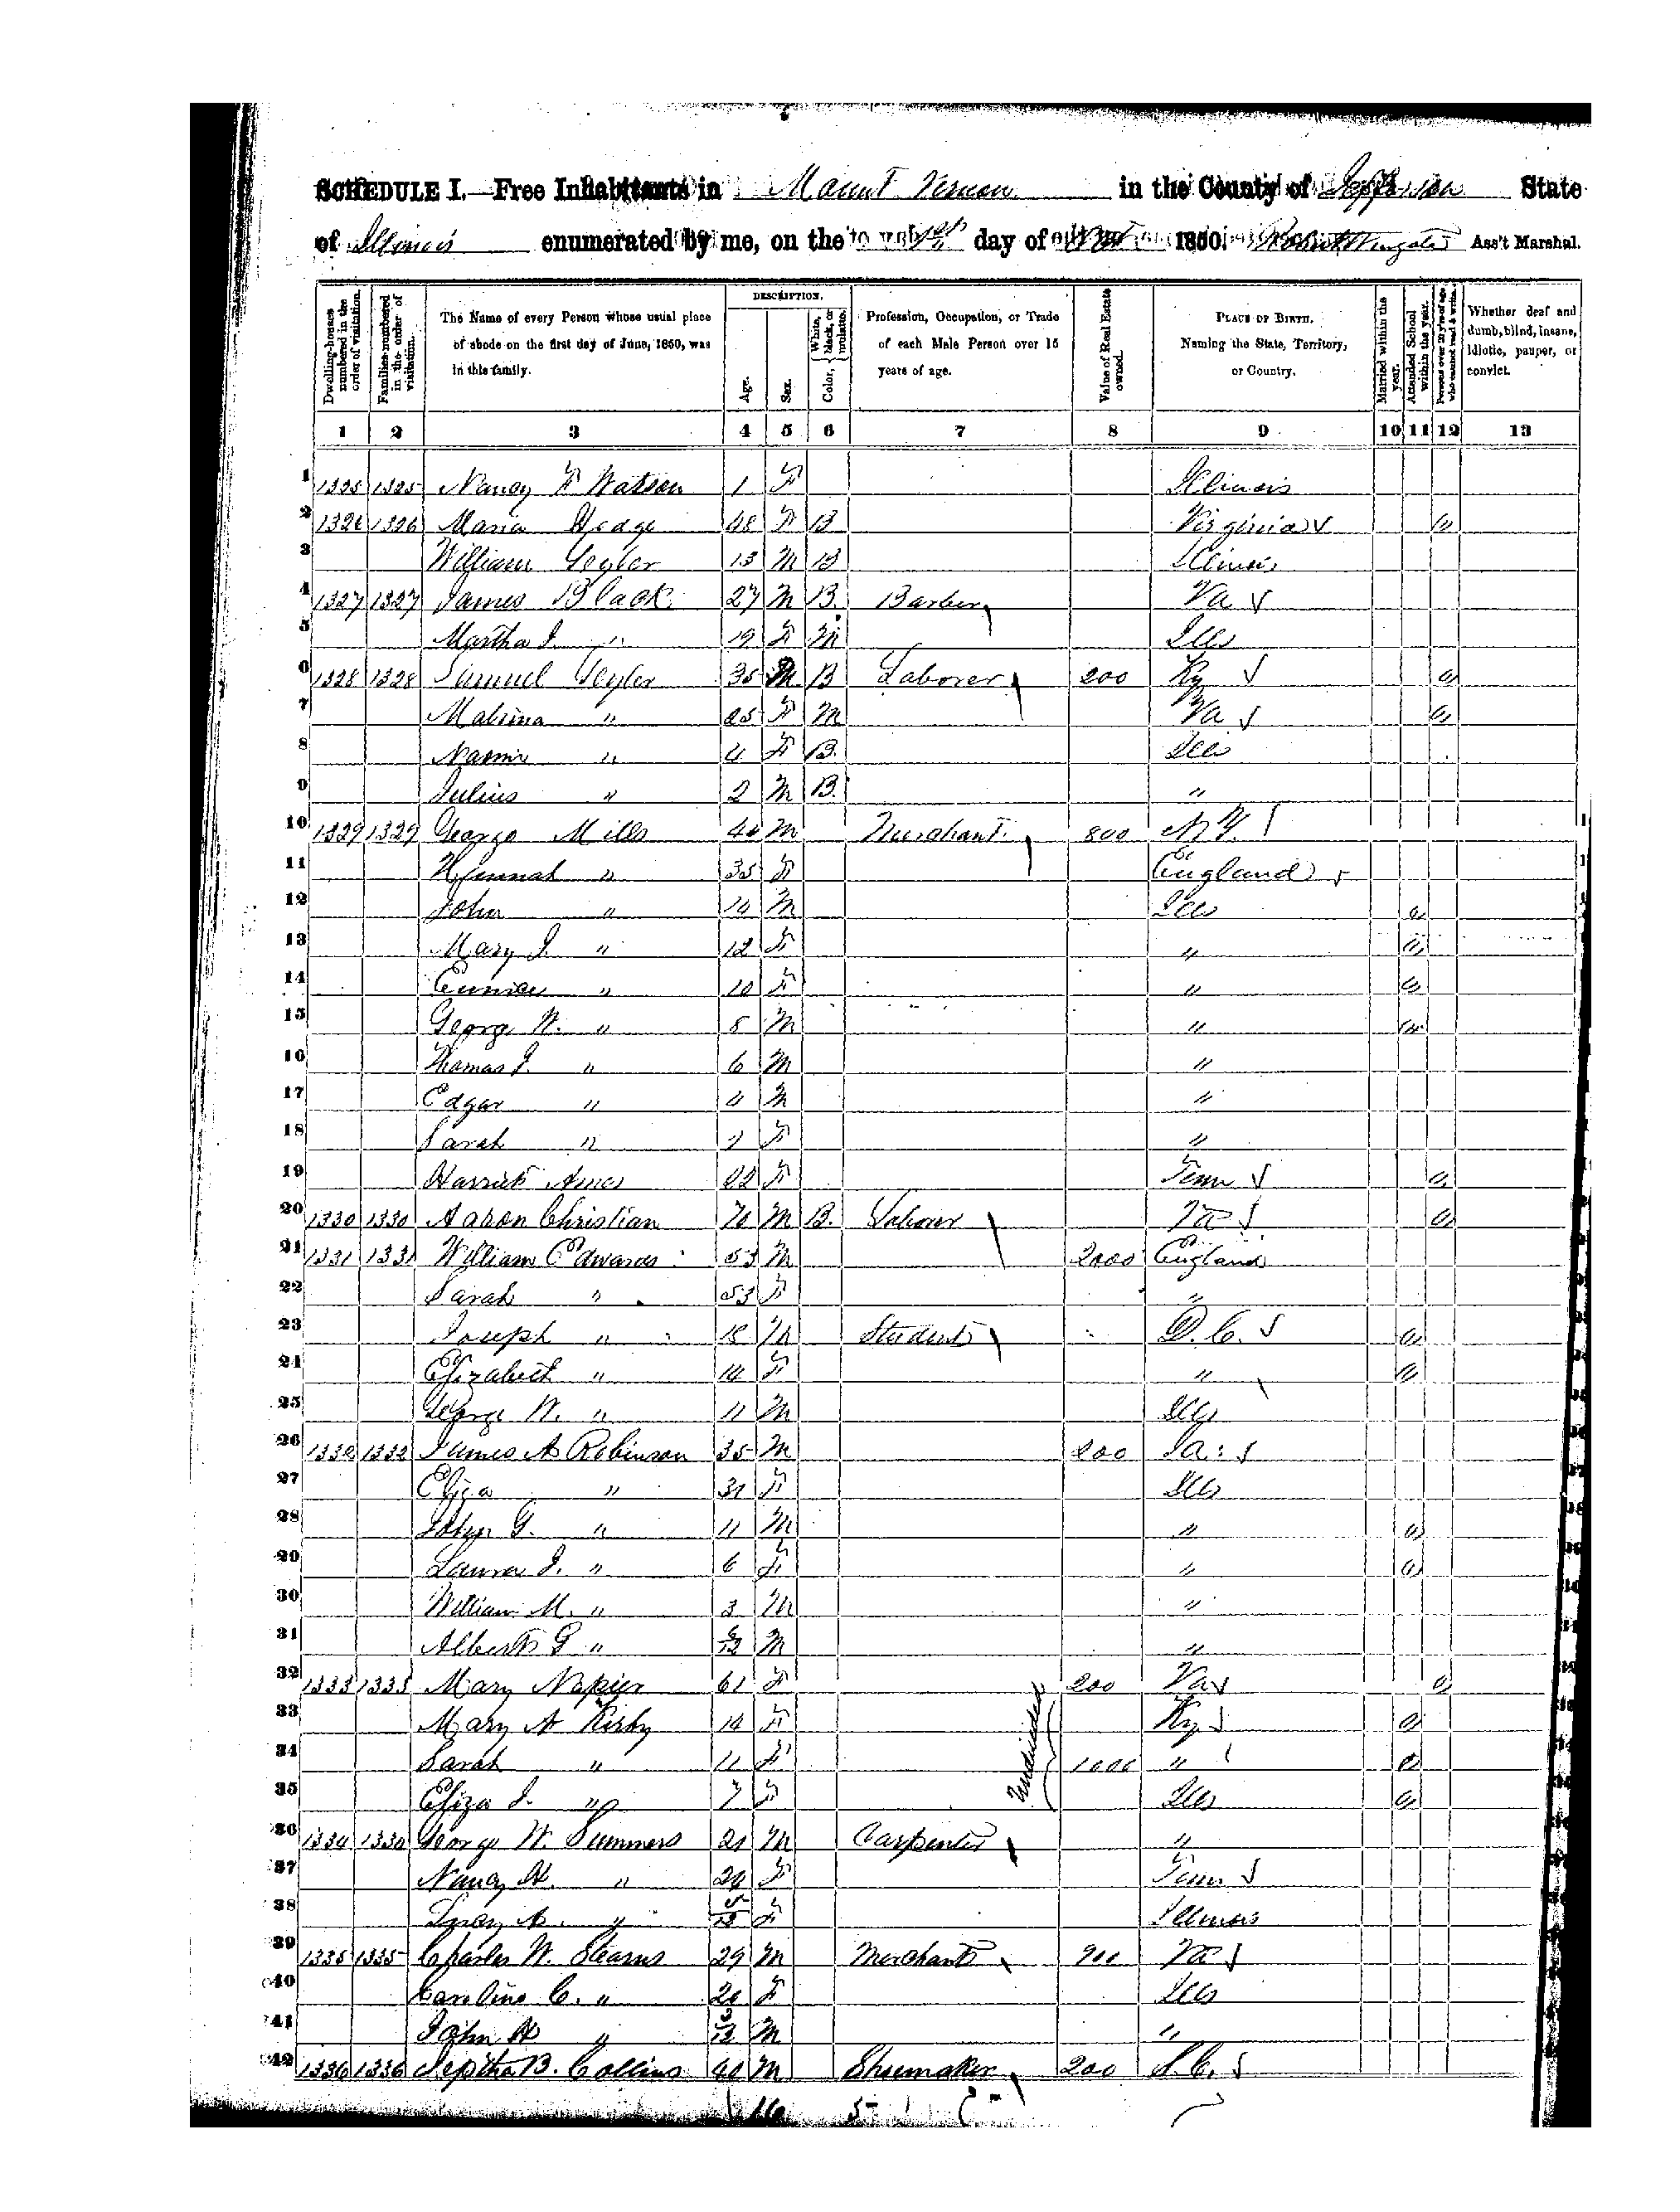 SCHEDULE I.—Free Inhabitants in Mount Vernon in the County of Jefferson State
of Illinois enumerated by me, on the day of 1850. Robert Wingate Ass't Marshal.
Dwelling-houses numbered in the order of visitation.
Families numbered in the order of visitation.
The Name of every Person whose usual place of abode on the first day of June, 1850, was in this family.
DESCRIPTION.
Age.
Sex.
Color, White, black, or mulatto.
Profession, Occupation, or Trade of each Male Person over 15 years of age.
Value of Real Estate owned.
PLACE OF BIRTH. Naming the State, Territory, or Country.
Married within the year.
Attended School within the year.
Persons over 20 y'rs of age who cannot read & write.
Whether deaf and dumb, blind, insane, idiotic, pauper, or convict.
1 2 3 4 5 6 7 8 9 10 11 12 13
1 1325 1325 Nancy Watson 1 F Illinois
2 1326 1326 Maria Hodge 48 F B Virginia
3 William 13 M B Illinois
4 1327 1327 James Black 27 M B. Barber Va
5 Martha J. " 19 F M Ills
6 1328 1328 Samuel 35 M B Laborer 200 Ky
7 " 25 F M Va
8 " 4 F B. Ills
9 Julius " 2 M B. "
10 1329 1329 George Mills 40 M Merchant 800 N.Y.
11 Hannah " 35 F England
12 John " 14 M Ills
13 Mary J. " 12 F "
14 Eunice " 10 F "
15 George W. " 8 M "
16 Thomas J. " 6 M "
17 Edgar " 4 M "
18 Sarah " 2 F "
19 Harriet 22 F Tenn
20 1330 1330 Aaron Christian 70 M B. Laborer Va
21 1331 1331 William Edwards 53 M 2000 England
22 Sarah " 53 F "
23 Joseph " 18 M Student D.C.
24 Elizabeth " 14 F "
25 George W. " 11 M Ills
26 1332 1332 James A Robinson 35 M 200
27 Eliza " 31 F Ills
28 John G. " 11 M "
29 Laura J. " 6 F "
30 William M. " 3 M "
31 Albert G " M "
32 1333 1333 Mary Napier 61 F 200 Va
33 Mary A Kirby 14 F Ky
34 Sarah " 11 F Undivided 1000 "
35 Eliza J. " 7 F Ills
36 1334 1334 George W. Summers 21 M Carpenter "
37 Nancy " 24 F Tenn
38 " 5/12 F Illinois
39 1335 1335 Charles W. Stearns 29 M Merchant 900 Va
40 Caroline C. " 20 F Ills
41 John H " M "
42 1336 1336 Jeptha B. Collins 40 M Shumaker 200 S.C.